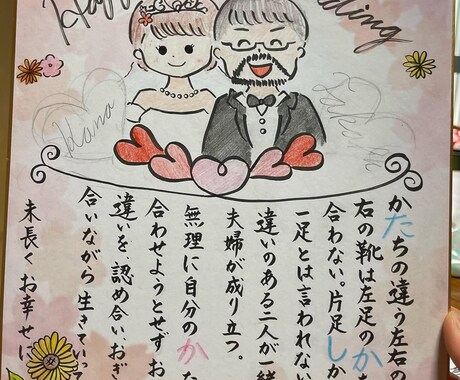 Hap
dding
かたちの違う左右の
右の靴は左足のか
合わない。片足しか
一足とは言われない
違いのある二人が一緒
夫婦が成り立つ。
無理に自分のかた
合わせようとせずお
違いを、認め合いおぎ
合いながら生きていって
末長くお幸せに